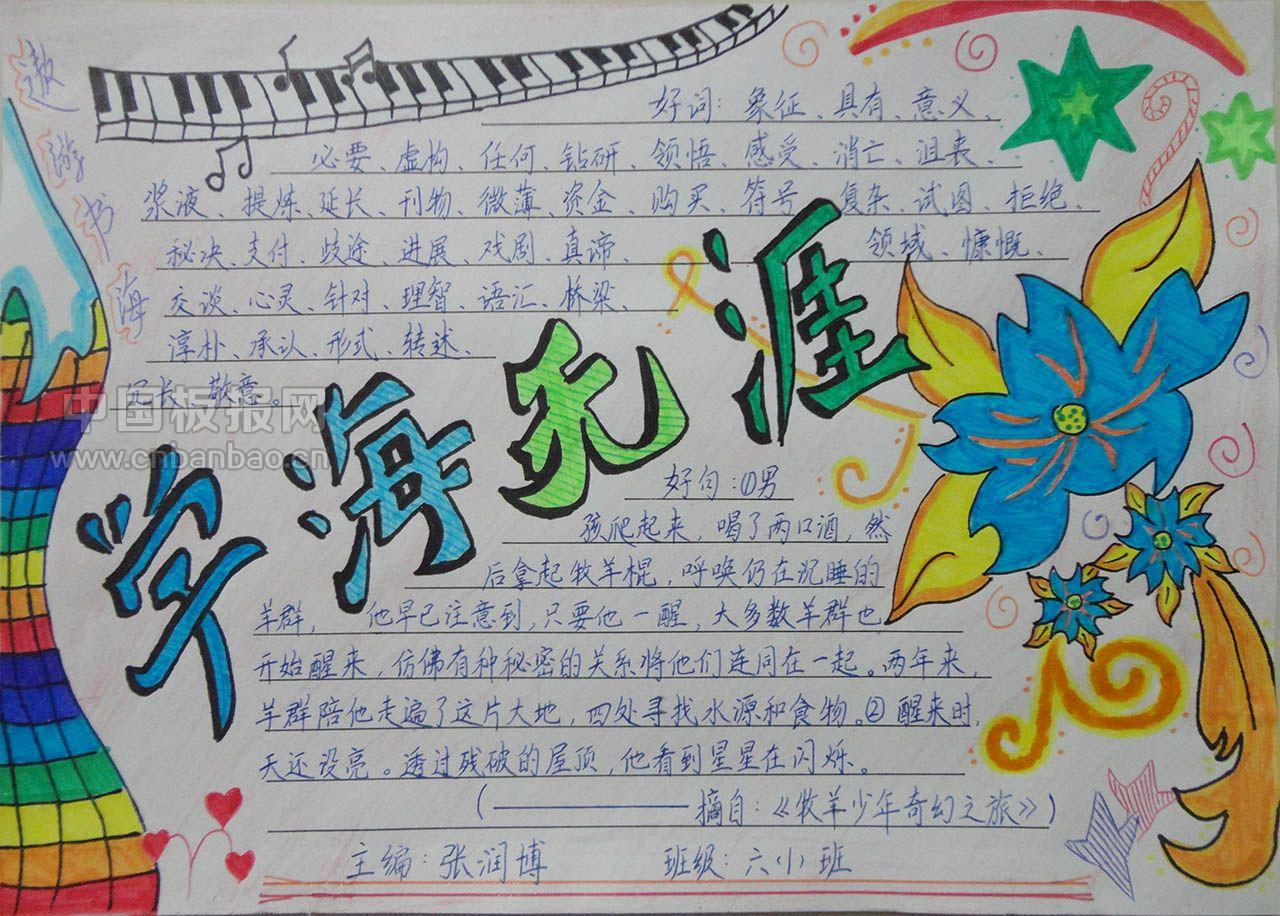 遨游书海
好词：象征、具有、意义、
必要、虚构、任何、钻研、领悟、感受、消亡、沮丧、
浆液、提炼、延长、刊物、微薄、资金、购买、符号、复杂、试图、拒绝、
秘决、支付、歧途、进展、戏剧、真谛、领域、慷慨、
交谈、心灵、针对、理智、语汇、桥梁、
淳朴、承认、形式、转述、
冗长、敬意。
中国板报网
www.cnbanbao.cn
学海无涯
好句：①男
孩爬起来，喝了两口酒，然
后拿起牧羊棍，呼唤仍在沉睡的
羊群，他早已注意到，只要他一醒，大多数羊群也
开始醒来，仿佛有种秘密的关系将他们连同在一起。两年来，
羊群陪他走遍了这片大地，四处寻找水源和食物。②醒来时，
天还没亮。透过残破的屋顶，他看到星星在闪烁。
(————摘自：《牧羊少年奇幻之旅》)
主编：张润博 班级：六(小)班